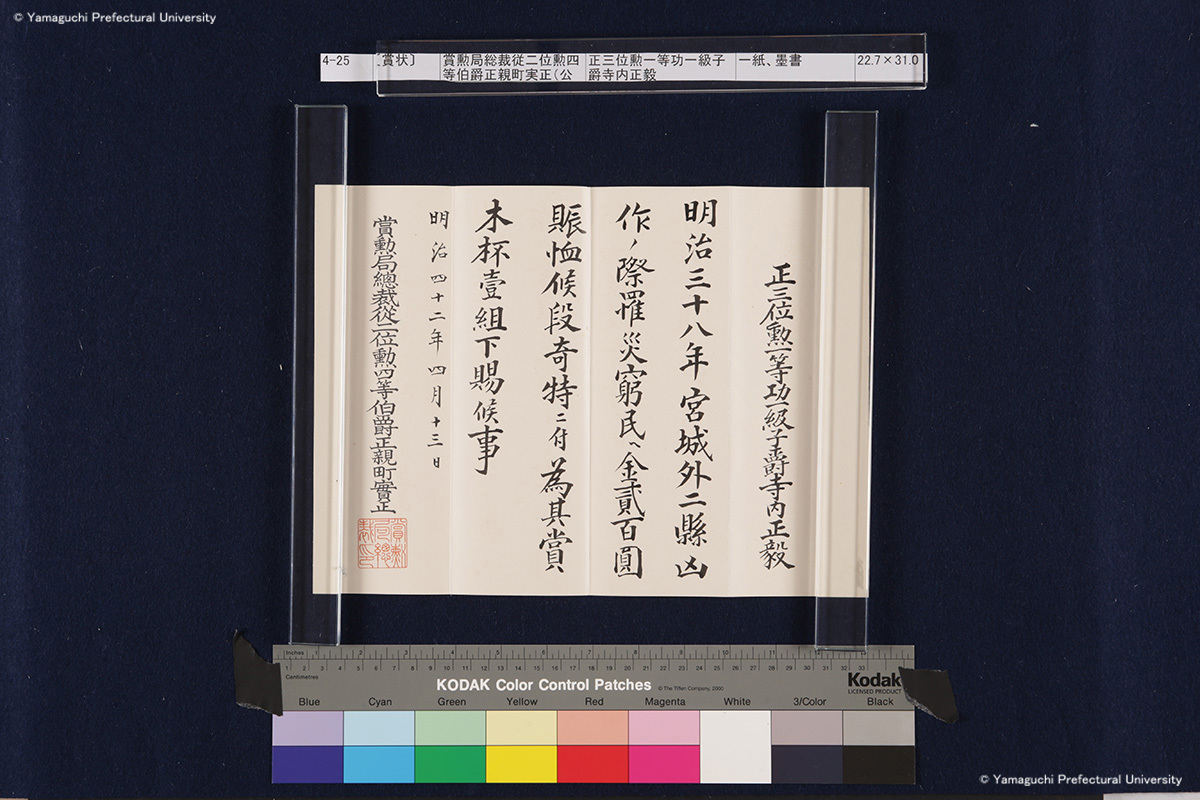 © Yamaguchi Prefectural University
4-25
〔賞状〕
賞勲局総裁従二位勲四
等伯爵正親町実正(公
正三位勲一等功一級子
爵寺内正毅
一紙、墨書
22.7×31.0
正三位勲一等功一級子爵寺内正毅
明治三十八年宮城外二縣凶
作ノ際罹災窮民ヘ金貳百圓
賑恤候段奇特ニ付為其賞
木杯壹組下賜候事
明治四十二年四月十三日
賞勲局總裁從二位勲四等伯爵正親町實正
Inches 1 2 3 4 5 6 7 8 9 10 11 12 13
Centimetres 1 2 3 4 5 6 7 8 9 10 11 12 13 14 15 16 17 18 19 20 21 22 23 24 25 26 27 28 29 30 31 32 33
KODAK Color Control Patches
© The Tiffen Company, 2000
Kodak
LICENSED PRODUCT
Blue Cyan Green Yellow Red Magenta White 3/Color Black
© Yamaguchi Prefectural University